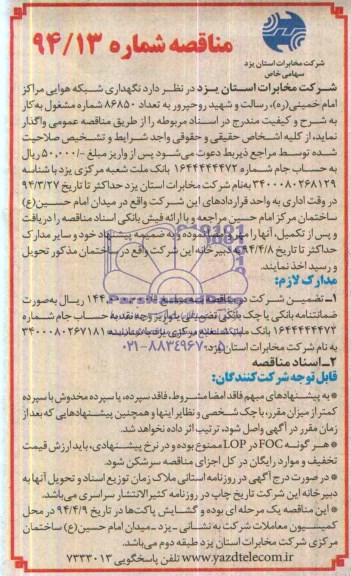 مناقصه شماره ۹۴/۱۳
شرکت مخابرات استان یزد
سهامی خاص
شرکت مخابرات استان یزد در نظر دارد نگهداری شبکه هوایی مراکز
امام خمینی(ره)، رسالت و شهید روحپرور به تعداد ۸۶۸۵۰ شماره مشغول به کار
به شرح و کیفیت مندرج در اسناد مربوطه را از طریق مناقصه عمومی واگذار
نماید، از کلیه اشخاص حقیقی و حقوقی واجد شرایط و تشخیص صلاحیت
شده توسط مراجع ذیربط دعوت می‌شود پس از واریز مبلغ -/۵۰.۰۰۰ ریال
به حساب جام شماره ۱۶۴۴۴۴۴۴۷۲ بانک ملت شعبه مرکزی یزد با شناسه
۳۴۰۰۰۸۰۲۶۸۱۲۹ به‌نام شرکت مخابرات استان یزد حداکثر تا تاریخ ۹۴/۳/۲۷
در وقت اداری به واحد قراردادهای این شرکت واقع در میدان امام حسین(ع)
ساختمان مرکز امام حسین مراجعه و با ارائه فیش بانکی اسناد مناقصه را دریافت
و پس از تکمیل، آنها را مهر و امضا نموده و به ضمیمه پیشنهاد خود و سایر مدارک
حداکثر تا تاریخ ۹۴/۴/۸ به دبیرخانه این شرکت واقع در ساختمان مذکور تحویل
و رسید اخذ نمایند.
مدارک لازم:
۱ـ تضمین شرکت در مناقصه به مبلغ ریال به‌صورت
ضمانتنامه بانکی یا چک بانکی تضمینی یا واریز وجه نقد به حساب جام شماره
۱۶۴۴۴۴۴۴۷۲ بانک ملت شعبه مرکزی یزد با شناسه ۳۴۰۰۰۸۰۲۶۷۱۸۱
به نام شرکت مخابرات استان یزد.
۰۲۱-۸۸۳۴۹۶۷۰
۲ـ اسناد مناقصه
قابل توجه شرکت‌کنندگان:
* به پیشنهادهای مبهم فاقد امضا مشروط، فاقد سپرده، یا سپرده مخدوش با سپرده
کمتر از میزان مقرر، با چک شخصی و نظایر اینها و همچنین پیشنهادهایی که بعد از
زمان مقرر در آگهی واصل شود، ترتیب اثر داده نخواهد شد.
* هر گونه FOC در LOP ممنوع بوده و در نرخ پیشنهادی، باید ارزش قیمت
تخفیف و موارد رایگان در کل اجزای مناقصه سرشکن شود.
* در صورت درج آگهی در روزنامه استانی ملاک زمان توزیع اسناد و تحویل آنها به
دبیرخانه این شرکت تاریخ چاپ در روزنامه کثیرالانتشار سراسری می‌باشد.
* این مناقصه یک مرحله‌ای بوده و گشایش پاکت‌ها در تاریخ ۹۴/۴/۹ در محل
کمیسیون معاملات شرکت به نشانی ـ یزد ـ میدان امام حسین(ع) ساختمان
مرکزی شرکت مخابرات استان یزد طبقه دوم می‌باشد.
www.yazdtelecom.ir تلفن پاسخگویی ۷۳۳۳۰۱۳